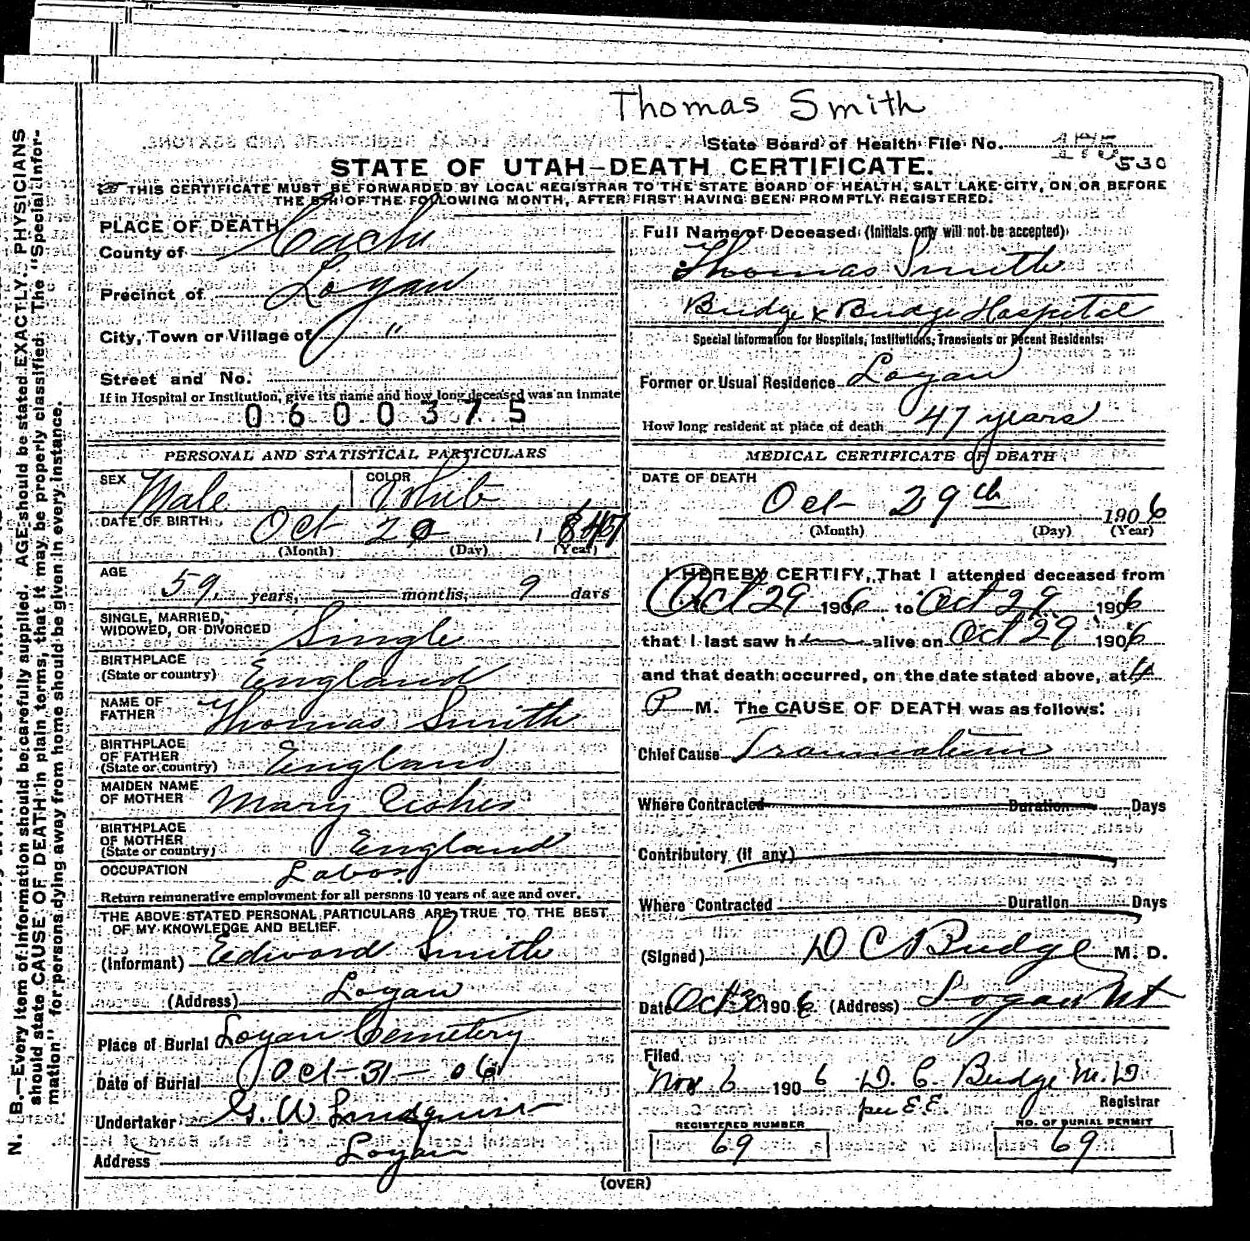 Thomas Smith
State Board of Health File No.
530
STATE OF UTAH—DEATH CERTIFICATE.
THIS CERTIFICATE MUST BE FORWARDED BY LOCAL REGISTRAR TO THE STATE BOARD OF HEALTH, SALT LAKE CITY, ON OR BEFORE
THE 5TH OF THE FOLLOWING MONTH, AFTER FIRST HAVING BEEN PROMPTLY REGISTERED.
PLACE OF DEATH
County of Cache
Precinct of Logan
City, Town or Village of "
Street and No.
If in Hospital or Institution, give its name and how long deceased was an inmate
0600375
PERSONAL AND STATISTICAL PARTICULARS
SEX Male COLOR White
DATE OF BIRTH Oct 20, 1847
(Month) (Day) (Year)
AGE
59 years, months, 9 days
SINGLE, MARRIED,
WIDOWED, OR DIVORCED Single
BIRTHPLACE
(State or country) England
NAME OF
FATHER Thomas Smith
BIRTHPLACE
OF FATHER
(State or country) England
MAIDEN NAME
OF MOTHER Mary
BIRTHPLACE
OF MOTHER
(State or country) England
OCCUPATION Labor
Return remunerative employment for all persons 10 years of age and over.
THE ABOVE STATED PERSONAL PARTICULARS ARE TRUE TO THE BEST
OF MY KNOWLEDGE AND BELIEF.
(Informant) Edward Smith
(Address) Logan
Place of Burial Logan Cemetery
Date of Burial Oct-31-06
Undertaker G. W. Lindquist
Address Logan
Full Name of Deceased (Initials only will not be accepted)
Thomas Smith
Budge & Budge Hospital
Special Information for Hospitals, Institutions, Transients or Recent Residents:
Former or Usual Residence Logan
How long resident at place of death 47 years
MEDICAL CERTIFICATE OF DEATH
DATE OF DEATH
Oct 29th 1906
(Month) (Day) (Year)
I HEREBY CERTIFY, That I attended deceased from
Oct 29 1906 to Oct 29 1906
that I last saw h alive on Oct 29 1906
and that death occurred, on the date stated above, at 4
P M. The CAUSE OF DEATH was as follows:
Chief Cause Traumatism
Where Contracted Duration Days
Contributory (if any)
Where Contracted Duration Days
(Signed) D C Budge M. D.
Date Oct 30 1906 (Address) Logan Ut
Filed
Nov 6 1906 D. C. Budge M.D.
per E E Registrar
REGISTERED NUMBER NO. OF BURIAL PERMIT
69 69
(OVER)
N. B.—Every item of information should be carefully supplied. AGE should be stated EXACTLY. PHYSICIANS
should state CAUSE OF DEATH in plain terms, that it may be properly classified. The "Special Infor-
mation" for persons dying away from home should be given in every instance.